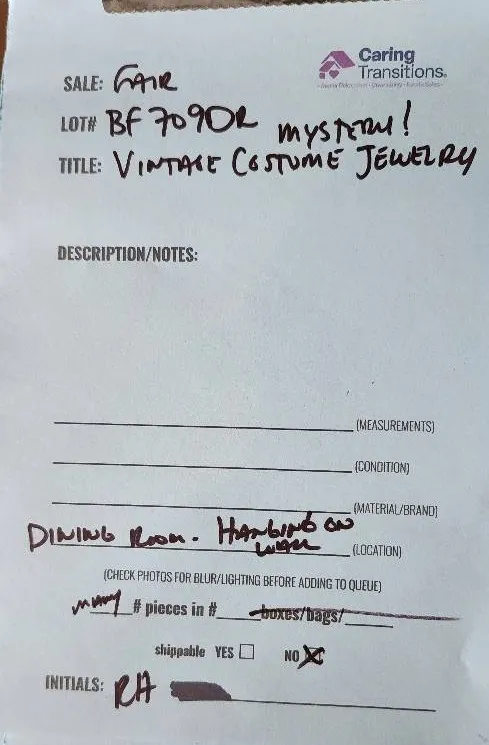 Caring
Transitions®
SALE: FAIR
LOT# BF709DR MYSTERY!
TITLE: VINTAGE COSTUME JEWELRY
DESCRIPTION/NOTES:
(MEASUREMENTS)
(CONDITION)
(MATERIAL/BRAND)
DINING ROOM. HANGING ON
WALL (LOCATION)
(CHECK PHOTOS FOR BLUR/LIGHTING BEFORE ADDING TO QUEUE)
many # pieces in # boxes/bags/
shippable YES NO
INITIALS: RH